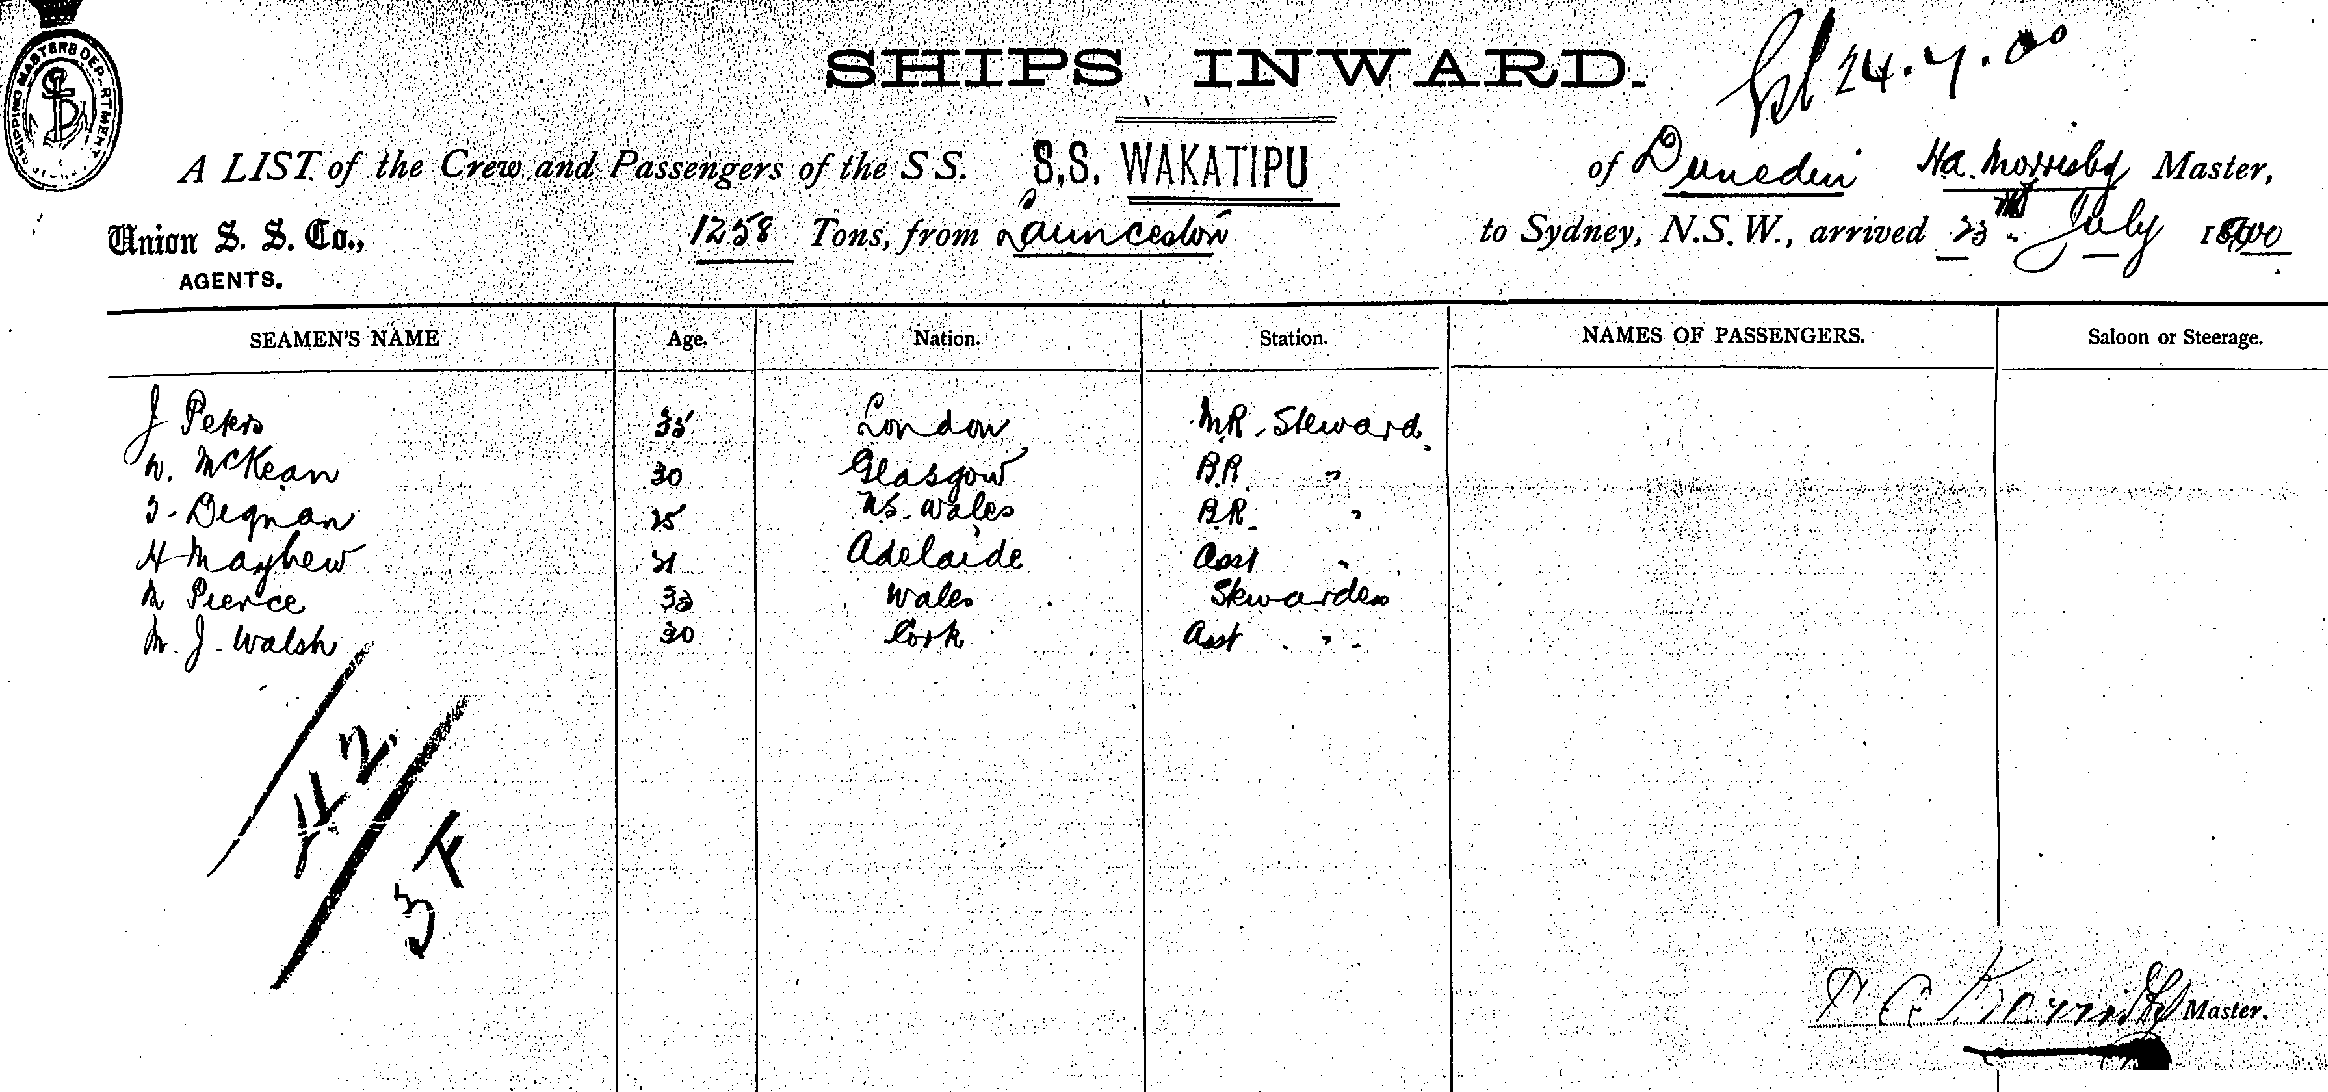 SHIPS INWARD.
24.7.00
SHIPPING MASTERS DEPARTMENT
A LIST of the Crew and Passengers of the S S. S.S. WAKATIPU of Dunedin Ha. Morrisby Master,
Union S. S. Co., 1258 Tons, from Launceston to Sydney, N.S.W., arrived 23 July 1900
AGENTS.
SEAMEN'S NAME Age. Nation. Station. NAMES OF PASSENGERS. Saloon or Steerage.
J Peters 35 London M.R. Steward
W. McKean 30 Glasgow B.R. "
J. Degnan 25 N.S. Wales B.R. "
H Mayhew 21 Adelaide Asst "
M Pierce 33 Wales Stewardess
M. J. Walsh 30 Cork Asst "
42
3 F
Master.